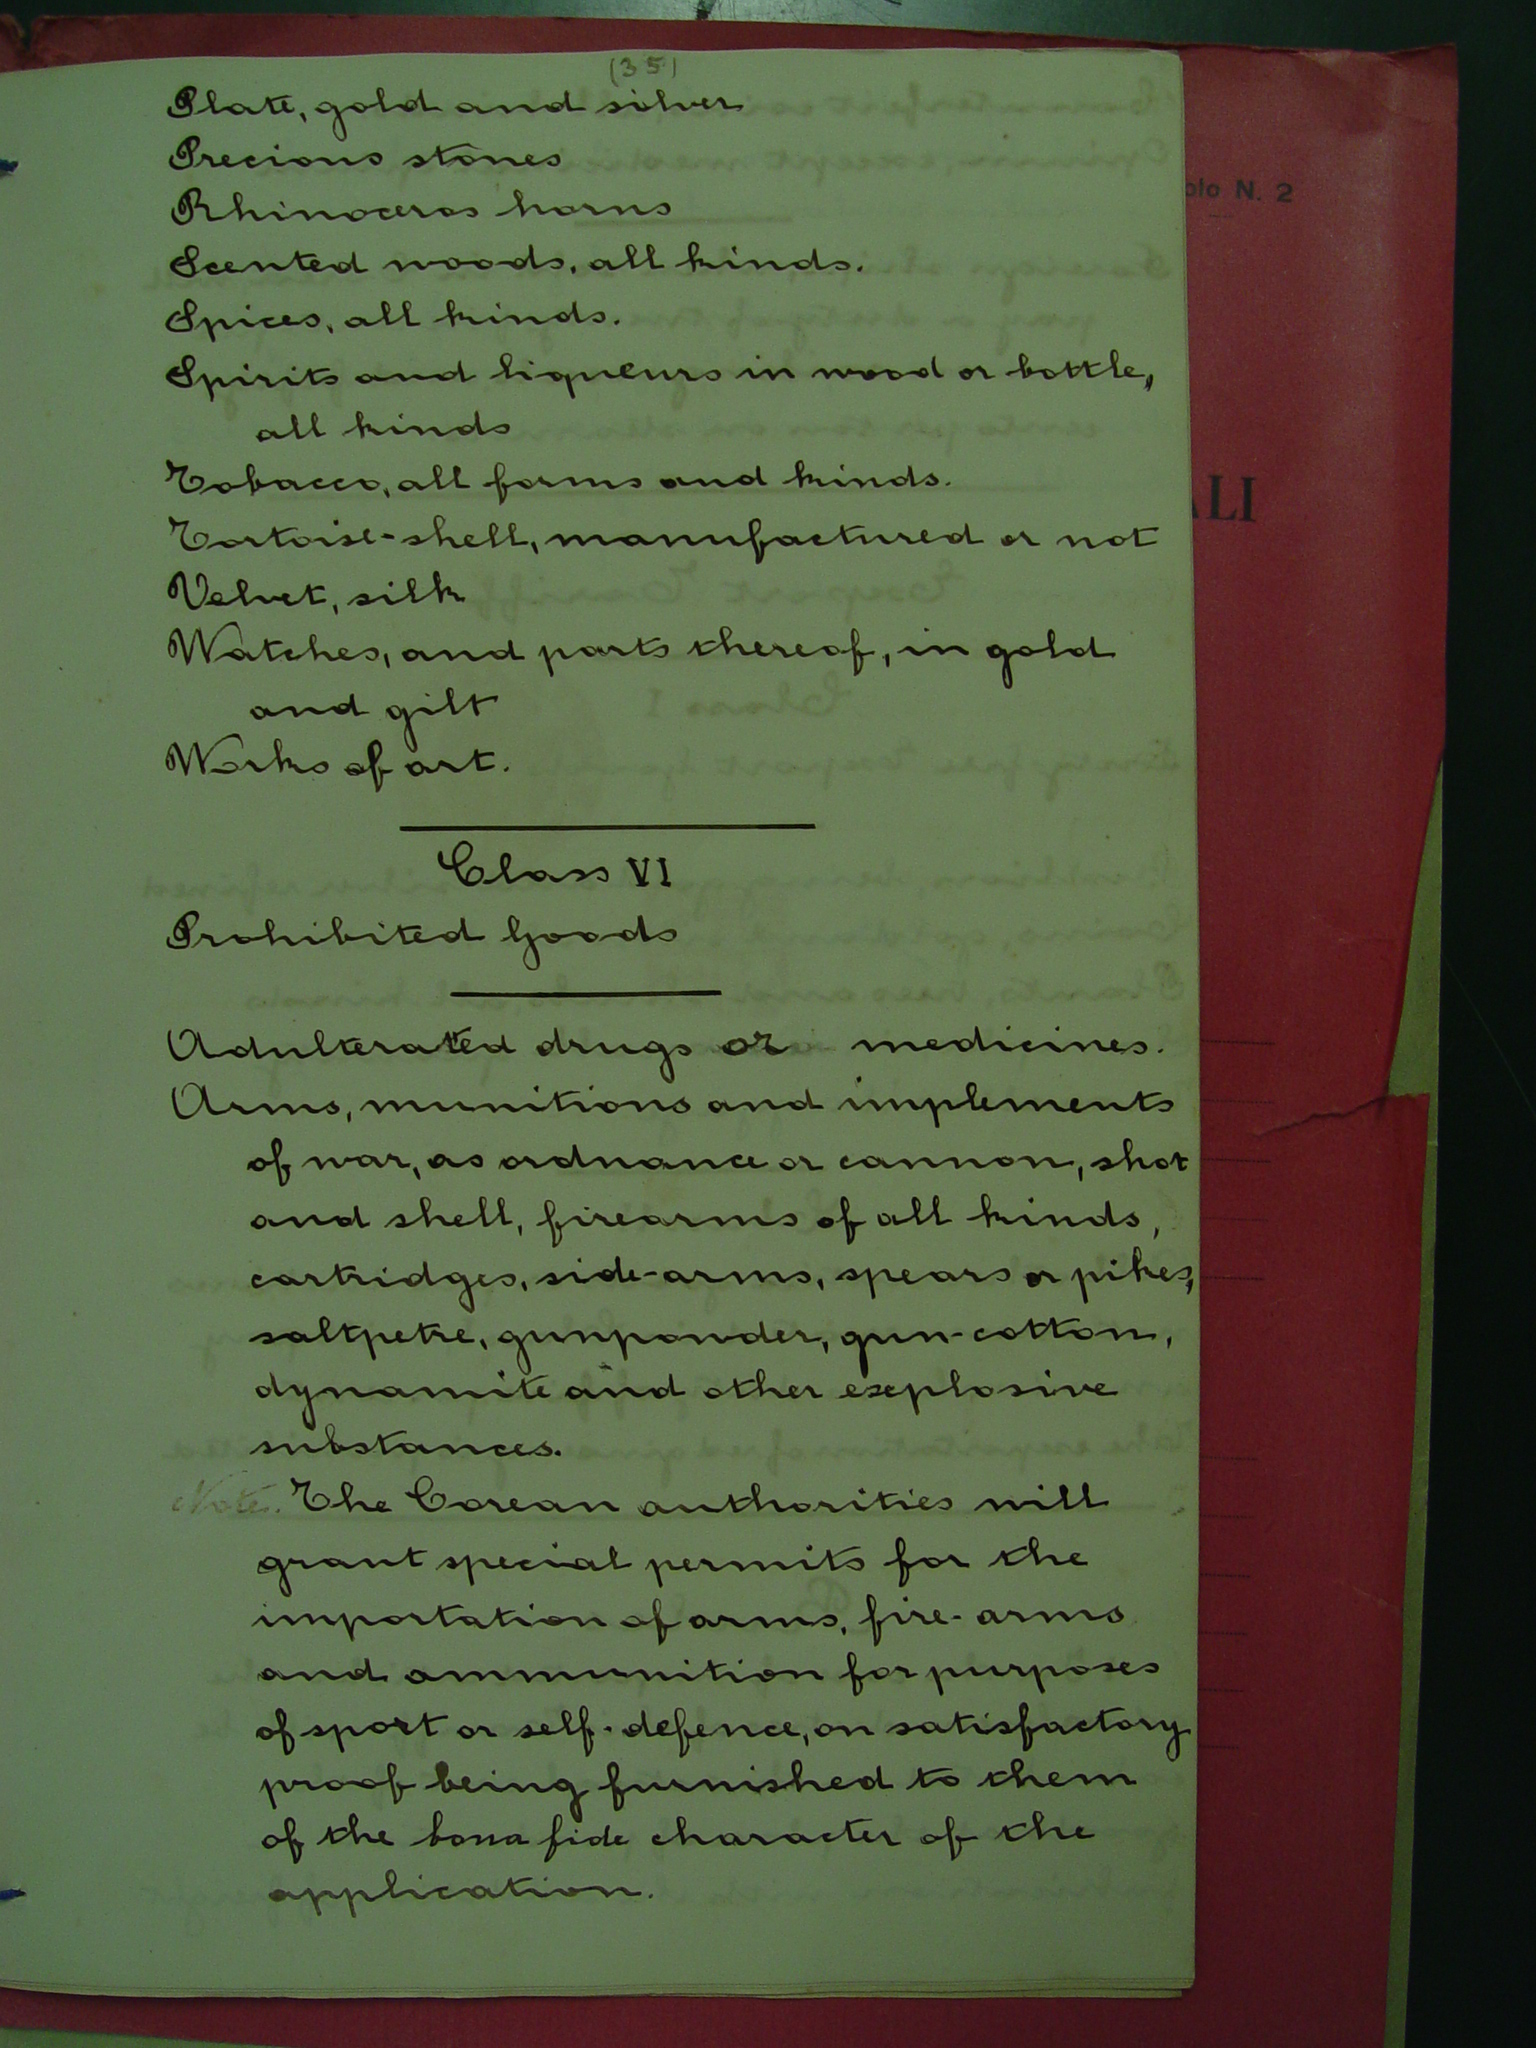 (35)
Plate, gold and silver
Precious stones
Rhinoceros horns
Scented woods, all kinds.
Spices, all kinds.
Spirits and liqueurs in wood or bottle,
all kinds
Tobacco, all forms and kinds.
Tortoise-shell, manufactured or not
Velvet, silk
Watches, and parts thereof, in gold
and gilt
Works of art.
Class VI
Prohibited Goods
Adulterated drugs or medicines.
Arms, munitions and implements
of war, as ordnance or cannon, shot
and shell, firearms of all kinds,
cartridges, side-arms, spears or pikes,
saltpetre, gunpowder, gun-cotton,
dynamite and other explosive
substances.
Note. The Corean authorities will
grant special permits for the
importation of arms, fire-arms
and ammunition for purposes
of sport or self-defence, on satisfactory
proof being furnished to them
of the bona fide character of the
application.
N. 2
ALI